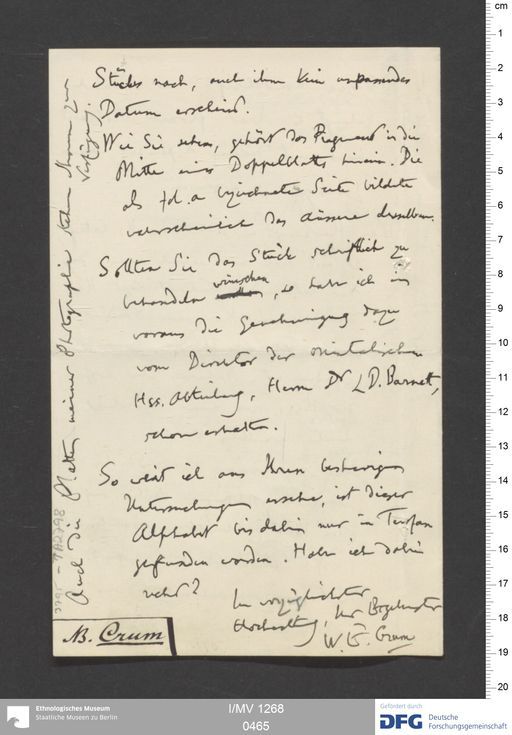 Stückes nach, auch ihm kein unpassendes
Datum erscheint.
Wie Sie sehen, gehört das Fragment in die
Mitte eines Doppelblatts hinein. Die
als fol. a bezeichnete Seite bildete
wahrscheinlich das äussere desselben.
Sollten Sie das Stück schriftlich zu
behandeln wünschen, so habe ich im
voraus die Genehmigung dazu
vom Direktor der orientalischen
Hss. Abteilung, Herrn Dr L.D. Barnett,
schon erhalten.
So weit ich aus Ihren bisherigen
Untersuchungen ersehe, ist dieser
Alphabet bis dahin nur in Turfan
gefunden worden. Habe ich dahin
recht?
In vorzüglichster
Hochachtung, Ihr Ergebenster
W. E. Crum
Auch die Platten meiner Photographie stehen Ihnen zur
Verfügung.
NB. Crum
TA2798
cm
1
2
3
4
5
6
7
8
9
10
11
12
13
14
15
16
17
18
19
20
Ethnologisches Museum
Staatliche Museen zu Berlin
I/MV 1268
0465
Gefördert durch
DFG Deutsche
Forschungsgemeinschaft